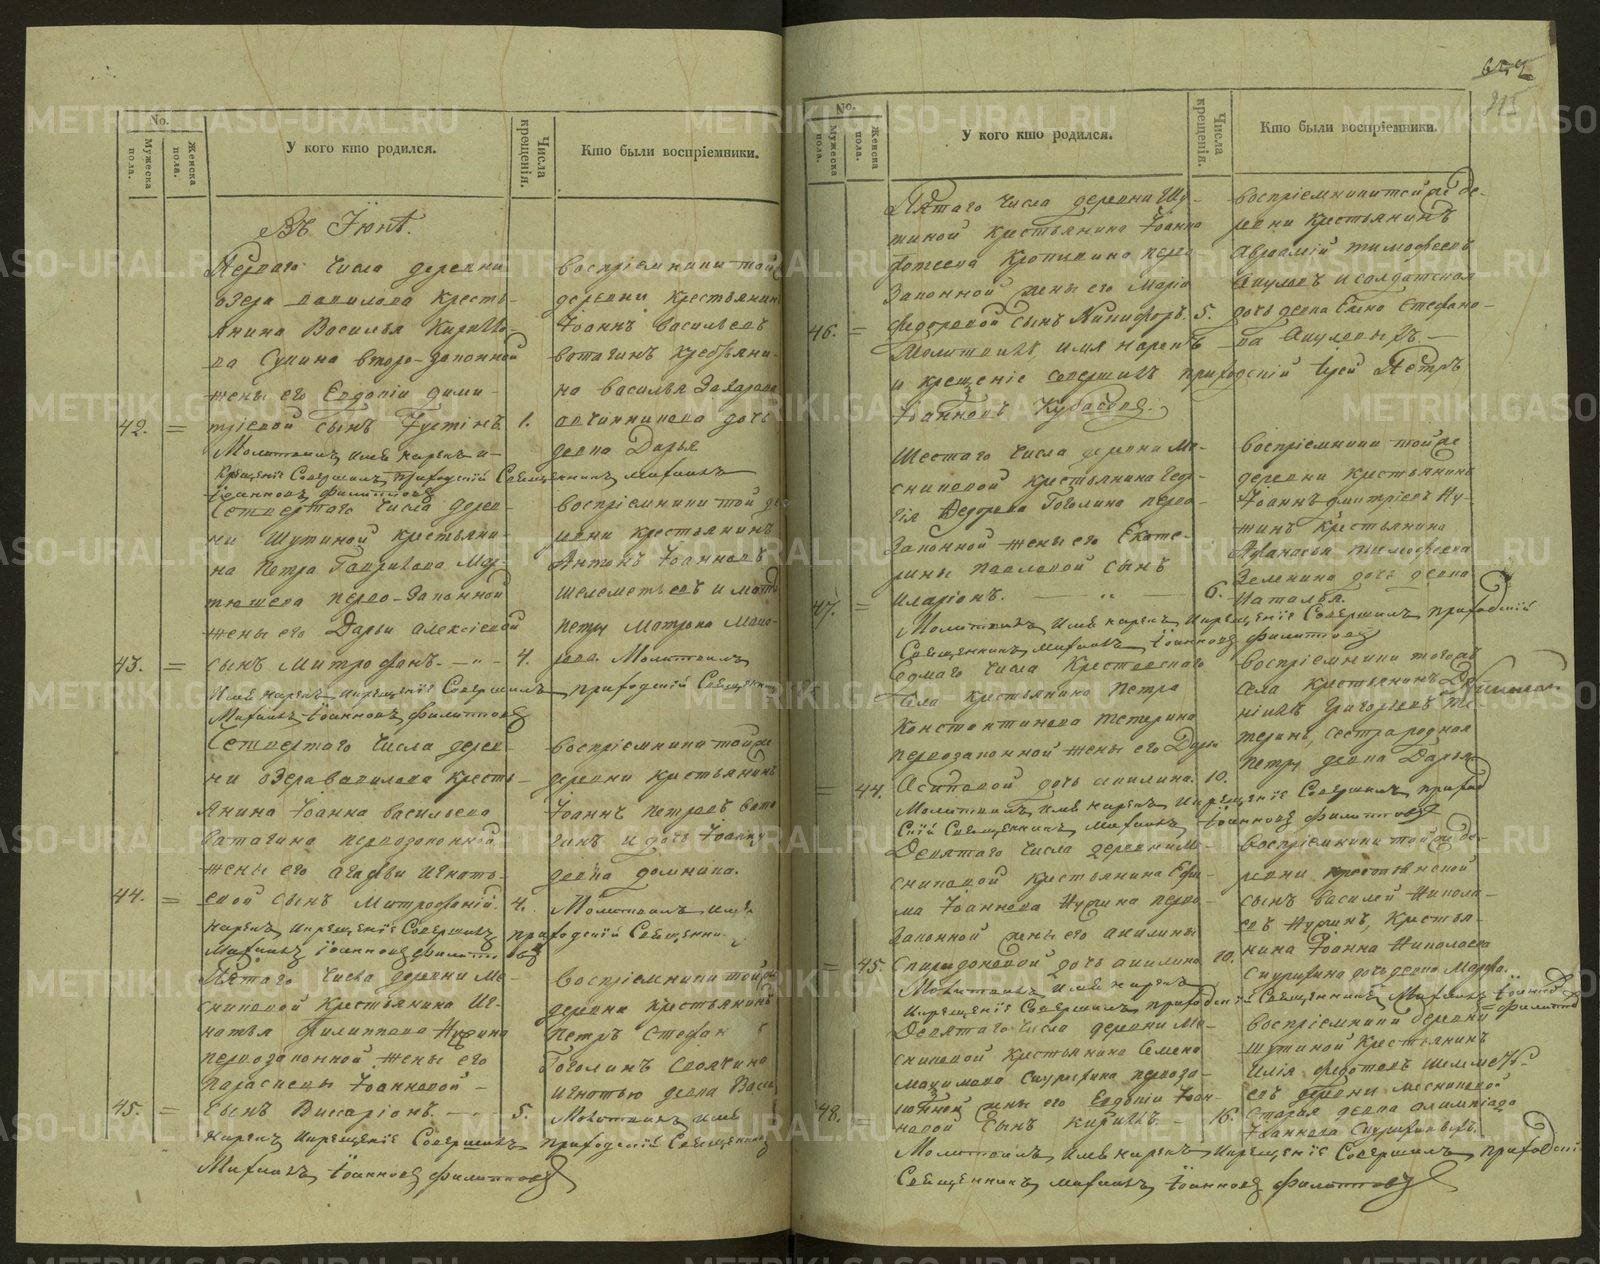 No.
Мужеска пола.
Женска пола.
У кого кто родился.
Числа крещенія.
Кто были воспріемники.
Въ Іюнѣ.
Перваго числа деревни
озера вавилова кресть-
янина Василья Кирило-
ва Сухина второ-законной
жены его Евдокіи дими-
42. = тріевой сынъ Іустінъ 1.
Молитвилъ имя нарекъ и
крещеніе Совершилъ приходскій Священникъ михаилъ
Іоанновъ филиппов
воспріемники той
деревни крестьянинъ
Іоаннъ васильевъ
ватагинъ крестьяни-
на василья Захарова
овчинникова дочь
девка Дарья
Четвертаго числа дерев-
ни Шутиной крестьяни-
на Петра Гаврилова Мур-
тюшева перво-законной
жены его Дарьи алексіевой
43. = сынъ митрофанъ. — " — 4.
имя нарекъ и крещеніе Совершилъ приходскій Священни
Михаилъ Іоанновъ филиппов
воспріемники той де
ревни крестьянинъ
Антонъ Іоанновъ
шелеметьевъ и
Петру Матрона
Молитвилъ
Четвертаго числа дерев
ни озера вавилова кресть-
янина Іоанна васильева
ватагина первозаконной
жены его агафьи игнать-
44. = евой сынъ митрофаній. 4.
нарекъ и крещеніе Совершилъ приходскій Священни
Михаилъ Іоанновъ филиппов
воспріемники той же
деревни крестьянинъ
Іоаннъ петровъ вата
гинъ и дочь Іоанну
девка домника.
Молитвилъ имя
Пятаго числа деревни Ме-
сниковой крестьянина Иг-
натья филиппова
первозаконной жены его
Параскевы Іоанновой —
45. = сынъ Висаріонъ. — " — 5.
нарекъ и крещеніе Совершилъ приходскій Священникъ
Михаилъ Іоанновъ филиппов
воспріемники той же
деревни крестьянинъ
Петръ Стефан
Гоголинъ
игнатью девка Васи
Молитвилъ имя
No.
Мужеска пола.
Женска пола.
У кого кто родился.
Числа крещенія.
Кто были воспріемники.
Пятаго числа деревни Шу-
тиной крестьянина Іоанна
фотеева Кропивина перво
законной жены его Маріи
46. = федоровой сынъ Никифоръ. 5.
Молитвилъ, имя нарекъ —
и крещеніе совершилъ приходскій Іерей Петръ
Іоанновъ Кубасовъ.
воспріемники той же де-
ревни крестьянинъ
Авраамій тимофеевъ
Акуловъ и солдатская
дочь девка Елена Стефано-
ва Акуловыхъ.
Шестаго числа деревни Ме-
сниковой крестьянина Геор-
гія Федорова Гоголина перво-
законной жены его Екате-
рины павловой сынъ
47. = иларіонъ. — " — 6.
Молитвилъ имя нарекъ и крещеніе Совершилъ приходскій
Священникъ михаилъ Іоанновъ филиппов
воспріемники той же
деревни крестьянинъ
Іоаннъ дмитріевъ
крестьянина
Афанасья тимофеева
Зеленина дочь девка
Наталья.
Седмаго числа Крестовскаго
села крестьянина Петра
Константинова тетерина
первозаконной жены его Дарьи
= 44. Осиповой дочь акилина. 10.
Молитвилъ имя нарекъ и крещеніе Совершилъ приход
скій Священникъ михаилъ Іоанновъ филиппов
воспріемники того же
села крестьянинъ
григорьевъ те-
теринъ, сестра родная
Петру девка Дарья
Девятаго числа деревни Ме-
сниковой крестьянина Ефи-
ма Іоаннова перво-
законной жены его акилины
= 45. Спиридоновой дочь акилина 10.
Молитвилъ имя нарекъ
и крещеніе Совершилъ приходскій Священникъ Михаилъ Іоаннов
филиппов
воспріемники той же де-
ревни крестьянской
сынъ василей Никола-
евъ крестья-
нина Іоанна Николаева
Скурихина дочь девка Марфа.
Девятаго числа деревни Ме-
сниковой крестьянина Семена
максимова Скурихина первоза-
конной жены его Евдокіи Іоан-
48. = новой сынъ кирилъ. — 16.
Молитвилъ имя нарекъ и крещеніе Совершилъ приходскій
Священникъ михаилъ Іоанновъ филиппов
воспріемники деревни
шутиной крестьянинъ
Илія федотовъ шелеметь-
евъ деревни месниковой
старая девка олимпіада
Іоаннова Скурихиныхъ.
METRIKI.GASO-URAL.RU